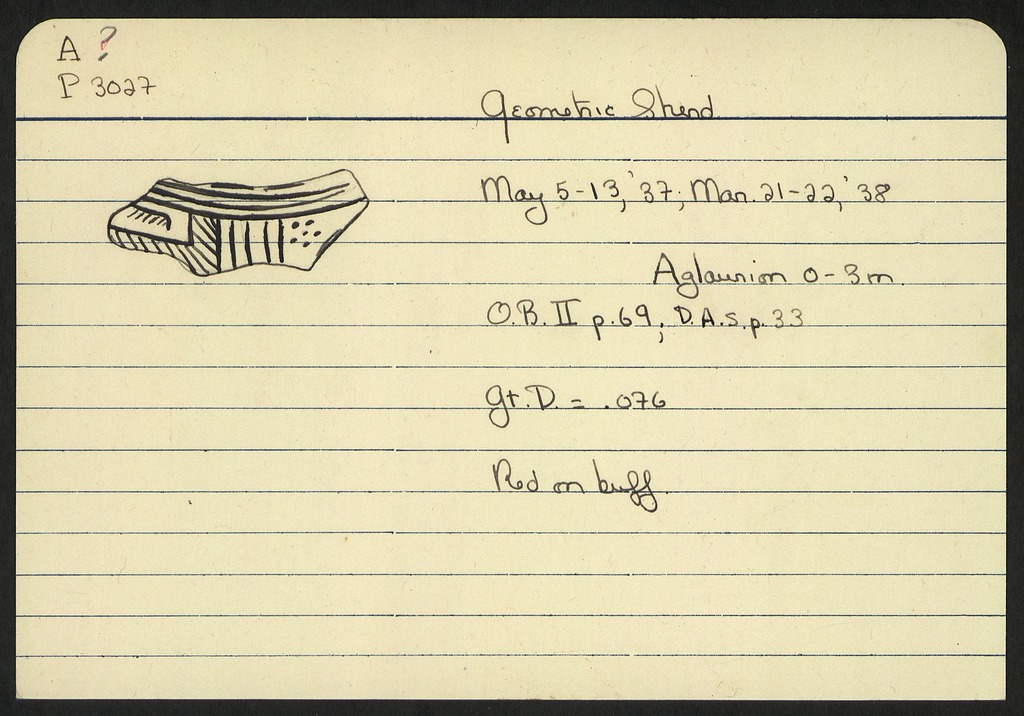 A ?
P 3027
Geometric Sherd
May 5-13, '37; Mar. 21-22, '38
Aglaurion 0-3m.
O.B. II p.69; D.A.S. p.33
Gt.D. = .076
Red on buff